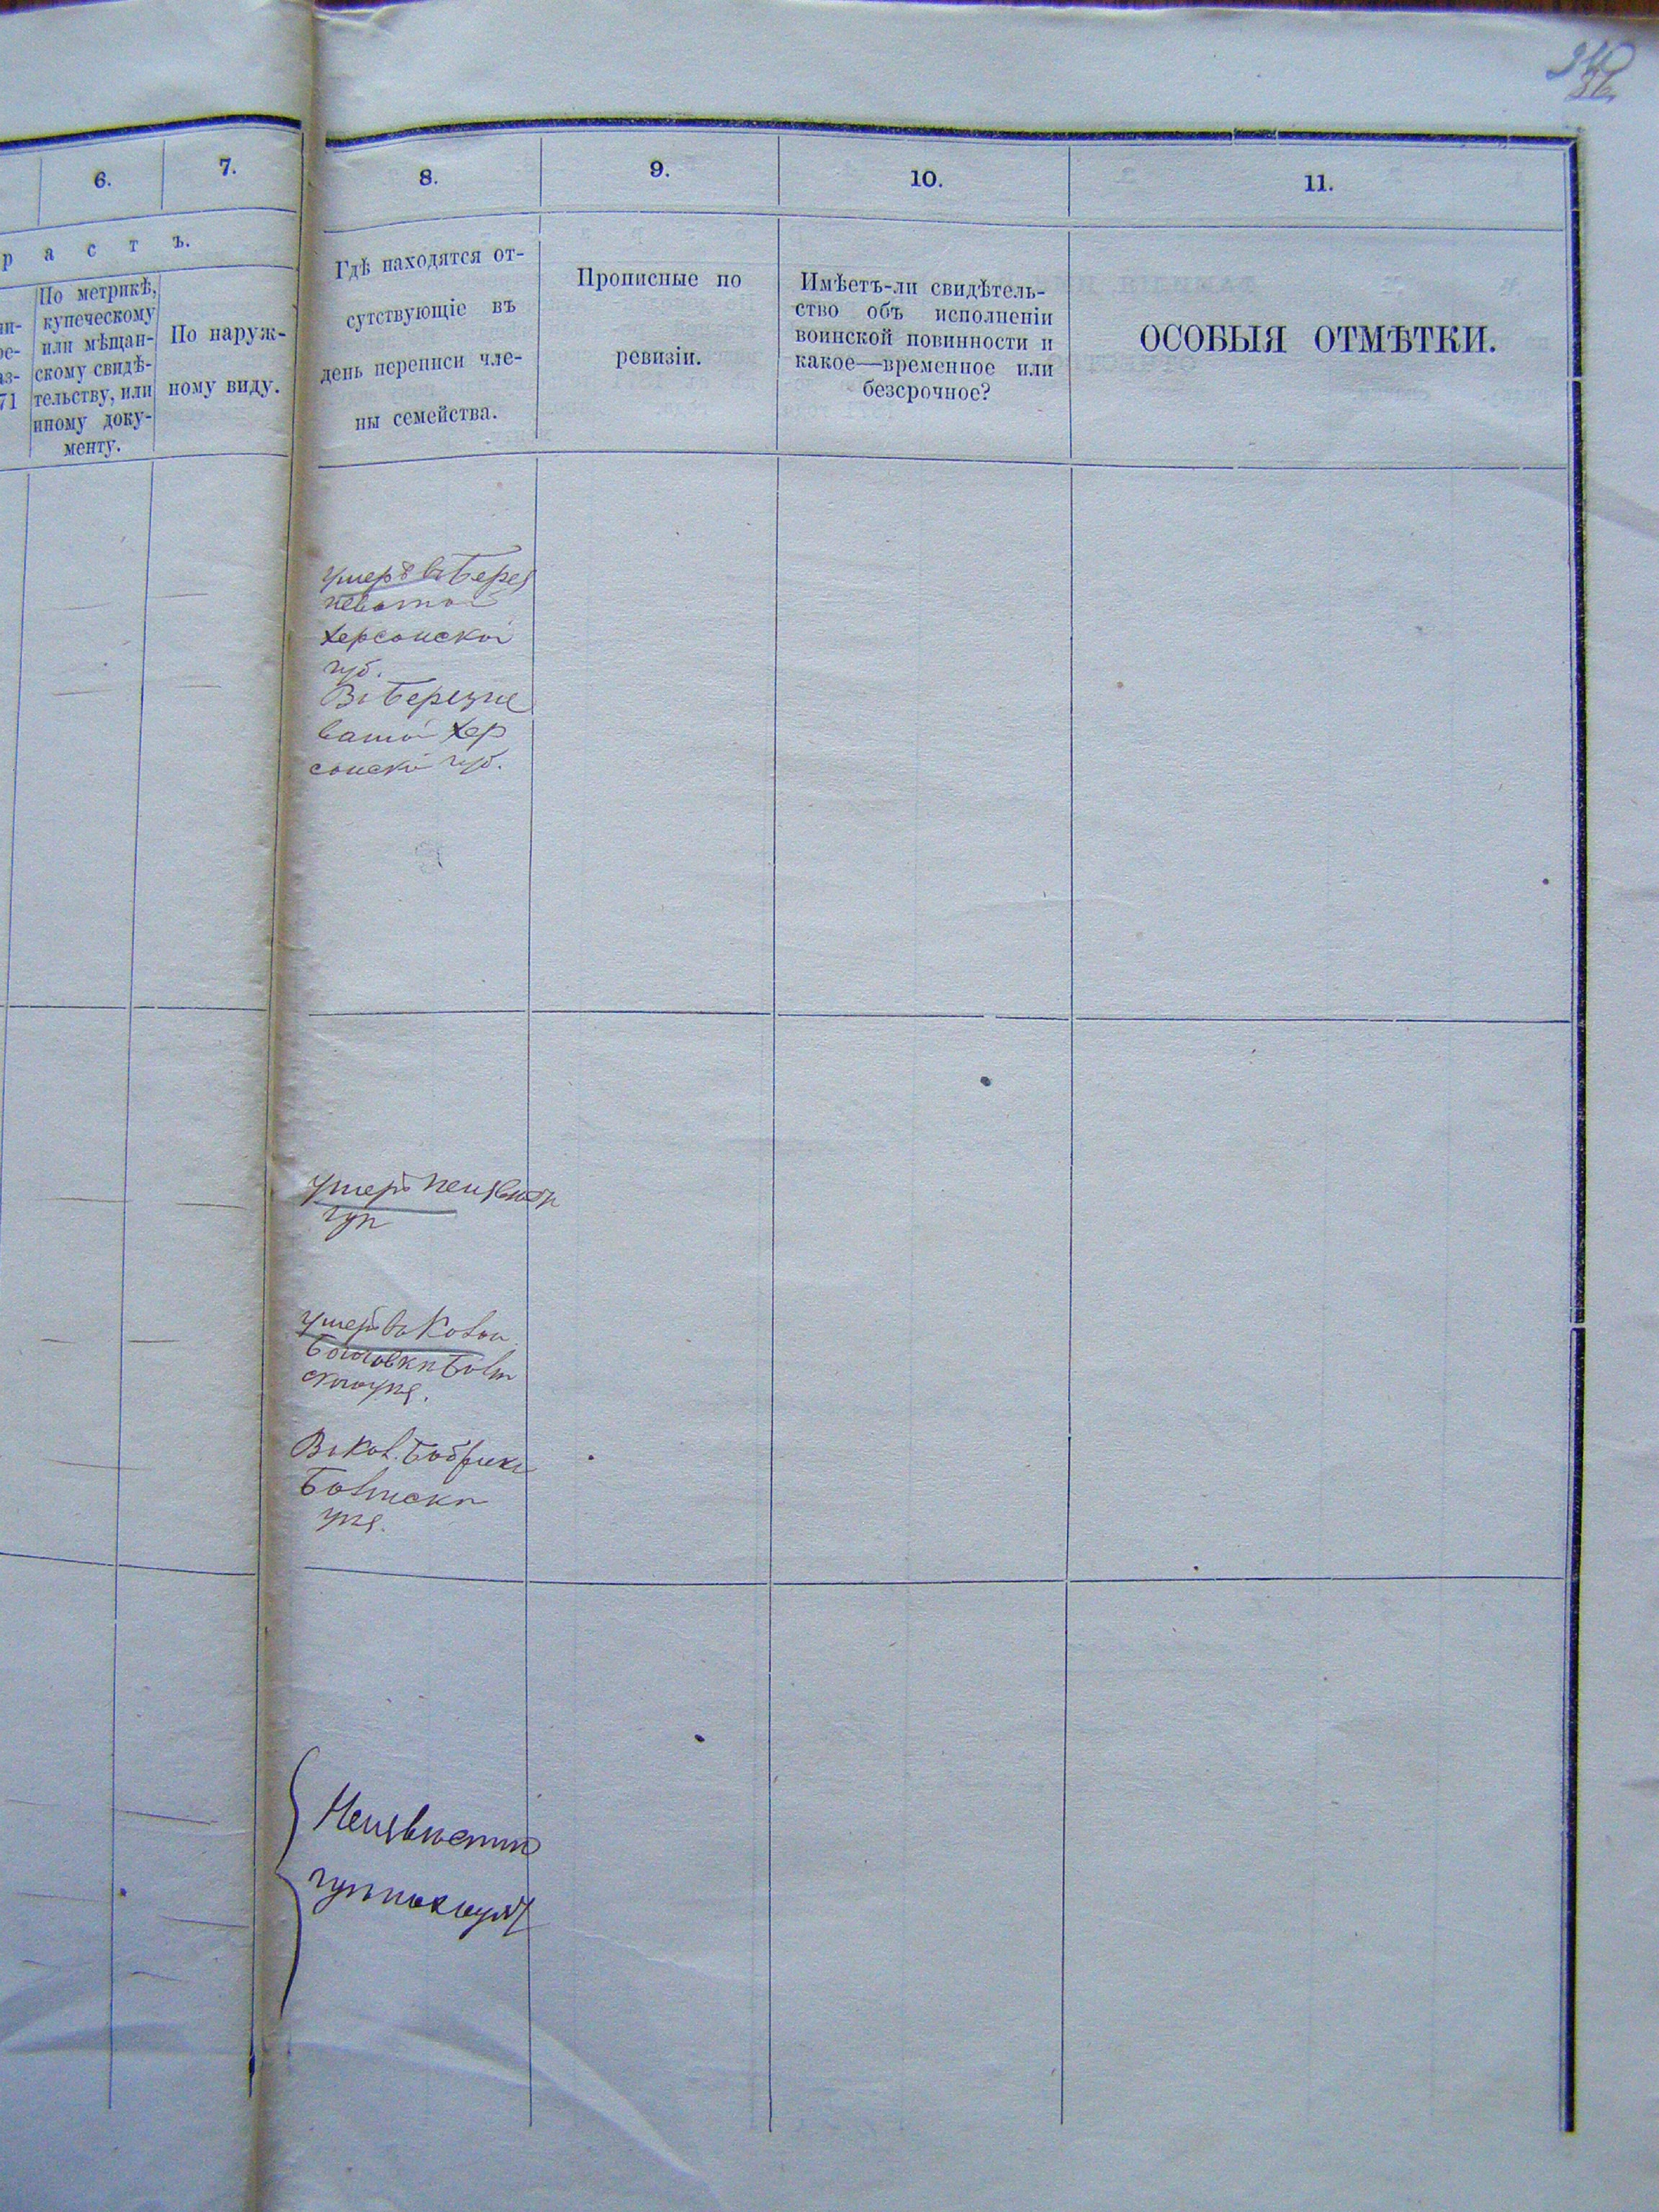 6.
7.
8.
9.
10.
11.
р а с т ъ.
По метрикѣ,
купеческому
или мѣщан-
скому свидѣ-
тельству, или
иному доку-
менту.
71
По наруж-
ному виду.
Гдѣ находятся от-
сутствующіе въ
день переписи чле-
ны семейства.
Прописные по
ревизіи.
Имѣетъ-ли свидѣтель-
ство объ исполненіи
воинской повинности и
какое—временное или
безсрочное?
ОСОБЫЯ ОТМѢТКИ.
умеръ въ Берез
неватой
Херсонской
губ.
Въ Березне
ватой Хер
сонской губ.
умеръ неизвѣстн
гдѣ
умеръ въ Кол
Въ Кол. Бобрики
Неизвѣстно
гдѣ